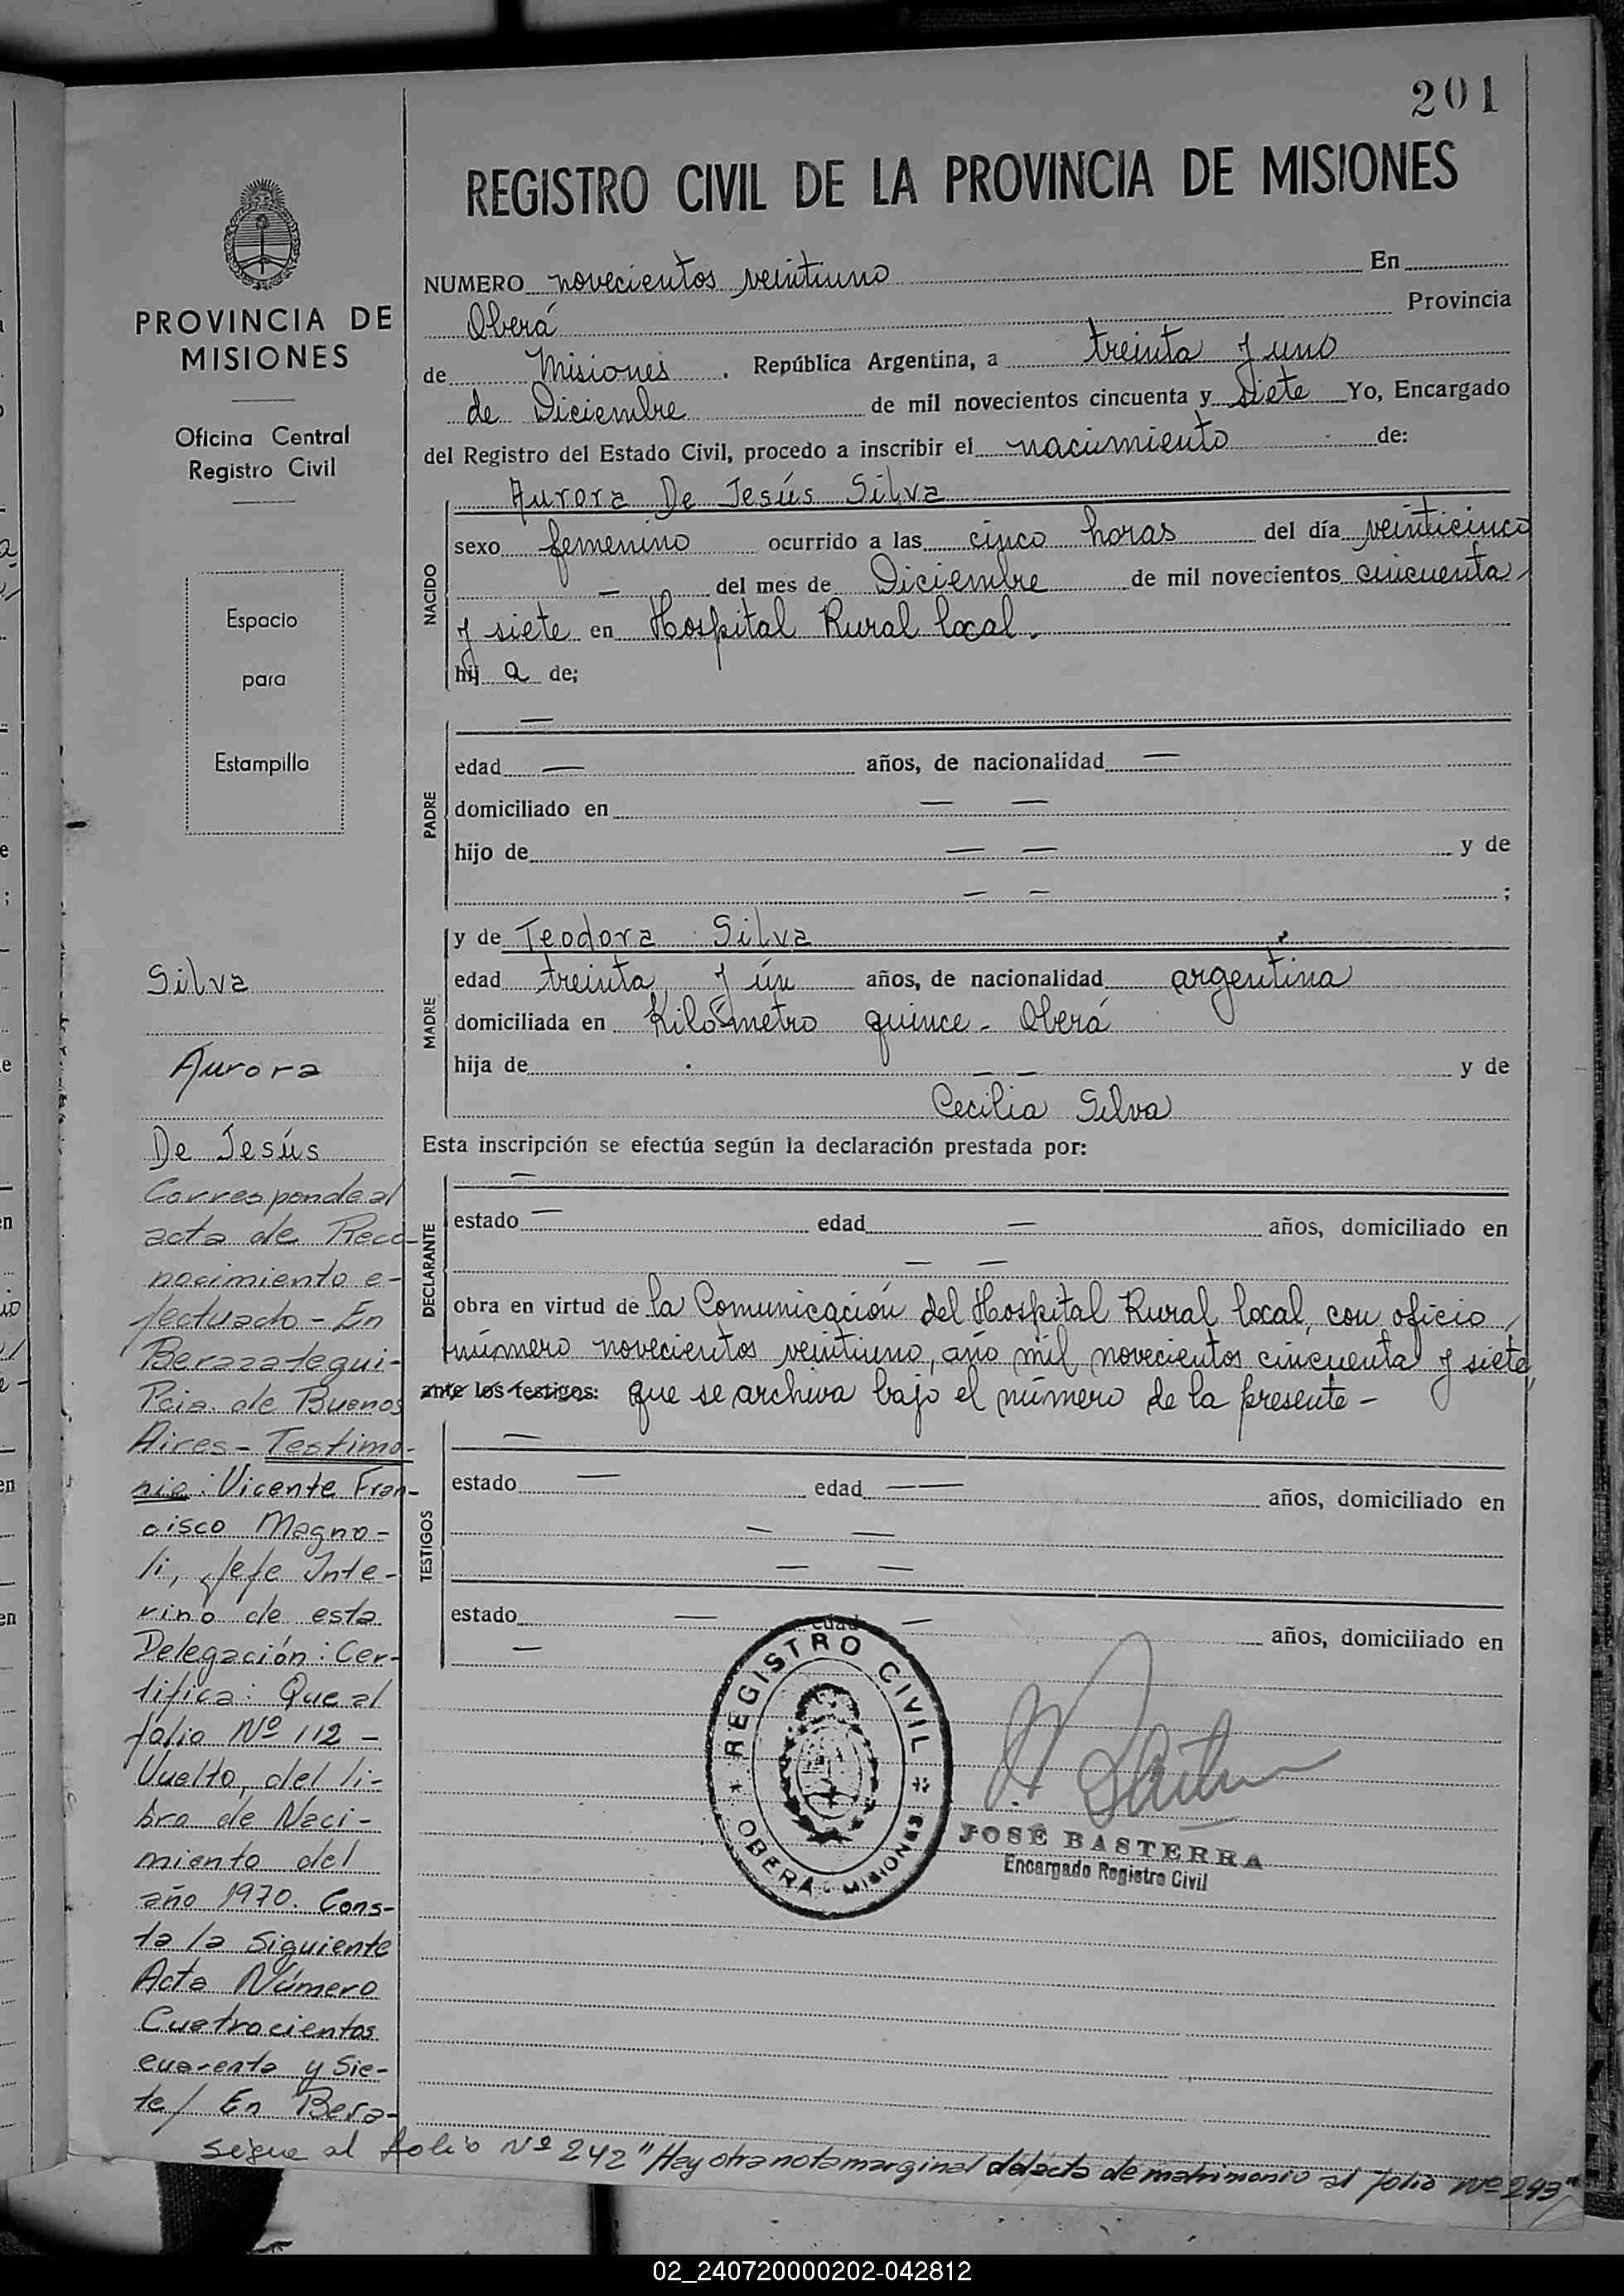 201
REGISTRO CIVIL DE LA PROVINCIA DE MISIONES
PROVINCIA DE
MISIONES
Oficina Central
Registro Civil
Espacio
para
Estampilla
NUMERO novecientos veintiuno En
Oberá Provincia
de Misiones . República Argentina, a treinta y uno
de Diciembre de mil novecientos cincuenta y siete Yo, Encargado
del Registro del Estado Civil, procedo a inscribir el nacimiento de:
NACIDO
Aurora De Jesús Silva
sexo femenino ocurrido a las cinco horas del día veinticinco
— del mes de Diciembre de mil novecientos cincuenta
y siete en Hospital Rural local.
hij a de;
PADRE
—
edad — años, de nacionalidad —
domiciliado en — —
hijo de — — y de
— — ;
MADRE
y de Teodora Silva
edad treinta y ún años, de nacionalidad argentina
domiciliada en Kilómetro quince - Oberá
hija de — — y de
Cecilia Silva
Esta inscripción se efectúa según la declaración prestada por:
DECLARANTE
—
estado — edad — años, domiciliado en
— —
obra en virtud de la Comunicación del Hospital Rural local, con oficio
número novecientos veintiuno, año mil novecientos cincuenta y siete,
ante los testigos: que se archiva bajo el número de la presente -
TESTIGOS
—
estado — edad — — años, domiciliado en
— —
— —
estado — edad — años, domiciliado en
—
REGISTRO CIVIL
OBERA - MISIONES
JOSÉ BASTERRA
Encargado Registro Civil
Silva
Aurora
De Jesús
Corresponde al
acta de Reco-
nocimiento e-
fectuado - En
Berazategui-
Pcia. de Buenos
Aires - Testimo-
nio: Vicente Fran-
cisco Magno-
li, Jefe Inte-
rino de esta
Delegación: Cer-
tifica: Que al
folio Nº 112 -
Vuelto, del li-
bro de Naci-
miento del
año 1970. Cons-
ta la siguiente
Acta Número
Cuatrocientos
cuarenta y Sie-
te/ En Bera-
Sigue al folio Nº 242 "Hay otra nota marginal del acta de matrimonio al folio Nº 293"
02_240720000202-042812